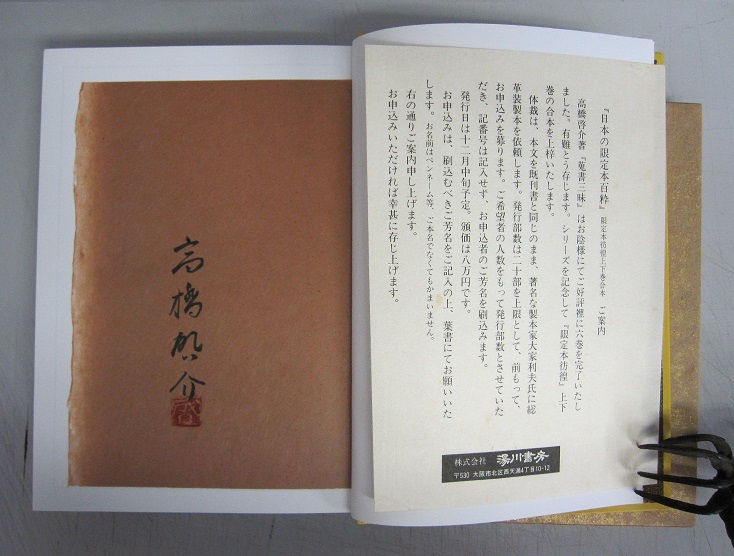 『日本の限定本百粋』限定本彷徨上下巻合本 ご案内
高橋啓介著『蒐書三昧』はお陰様にてご好評裡に六巻を完了いたし
ました。有難とう存じます。シリーズを記念して『限定本彷徨』上下
巻の合本を上梓いたします。
体裁は、本文を既刊書と同じのまま、著名な製本家大家利夫氏に総
革装製本を依頼します。発行部数は二十部を上限として、前もって、
お申込みを募ります。ご希望者の人数をもって発行部数とさせていた
だき、記番号は記入せず、お申込者のご芳名を刷込みます。
発行日は十二月中旬予定。頒価は八万円です。
お申込みは、刷込むべきご芳名をご記入の上、葉書にてお願いいた
します。お名前はペンネーム等、ご本名でなくてもかまいません。
右の通りご案内申し上げます。
お申込みいただければ幸甚に存じ上げます。
株式会社 湯川書房
〒530 大阪市北区西天満4丁目10-12
高橋啓介